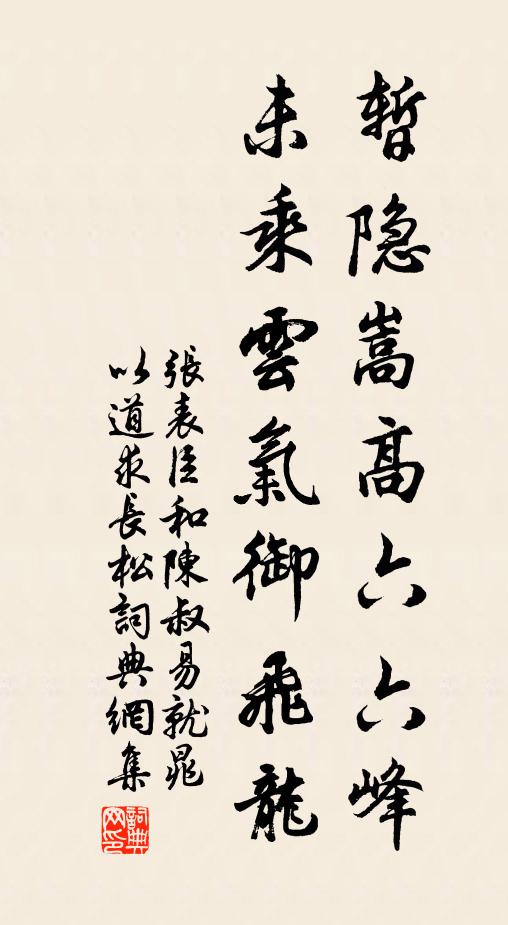 暫隐嵩高六六峰
未乘雲氣御飛龍
張表臣和陳叔易就晁
以道求長松詞典網集
詞典
网印